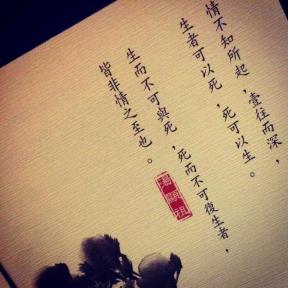 情不知所起，壹往而深，
生者可以死，死可以生。
生而不可與死，死而不可復生者，
皆非情之至也。
湯顯祖